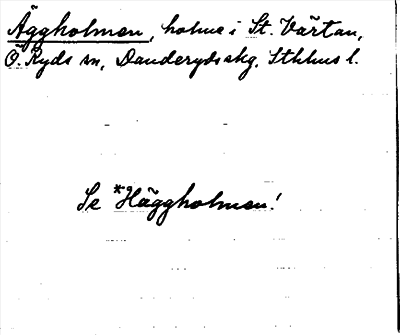 Äggholmen, holme i St. Värtan,
Ö. Ryds sn, Danderyds skg, Sthlms l.
Se *Häggholmen!